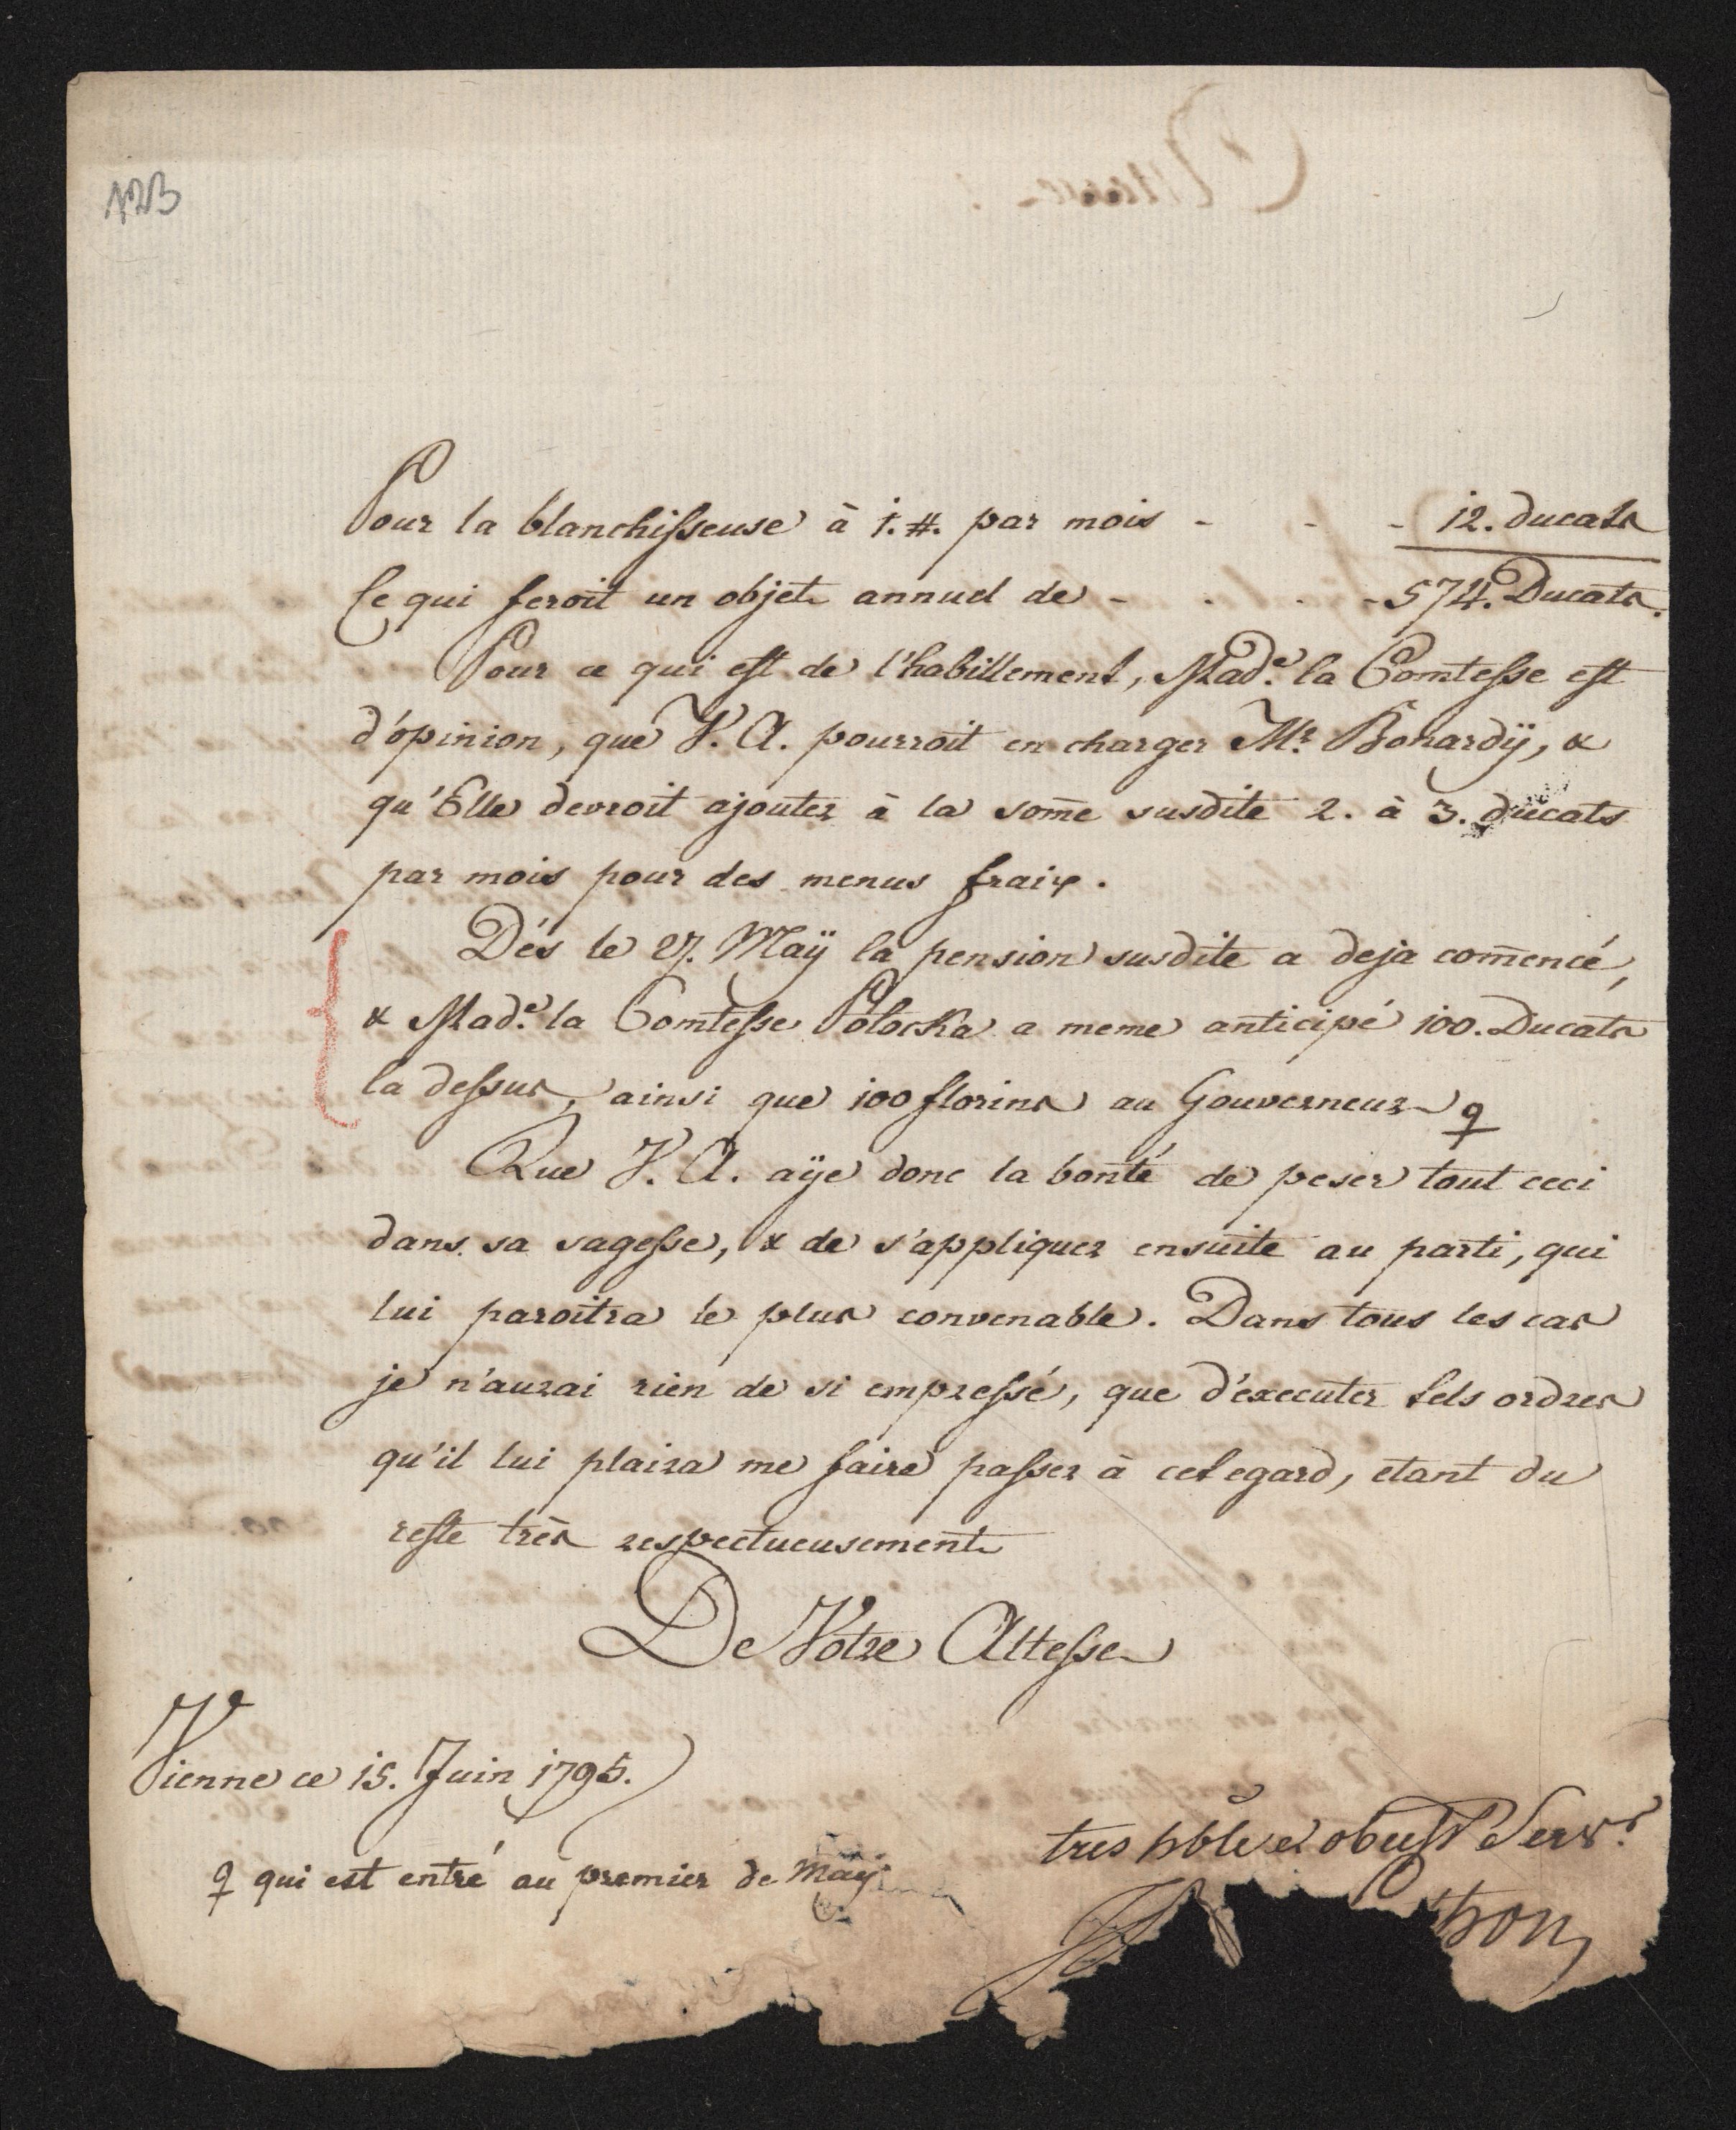 Pour la blanchisseuse à 1. #. par mois - - - 12. ducats
Ce qui feroit un objet annuel de - - - - 574. Ducats.
Pour ce qui est de l'habillement, Mad.e la Comtesse est
d'opinion, que V. A. pourroit en charger Mr. Bonardÿ, &
qu'Elle devroit ajouter à la som̄e susdite 2. à 3. ducats
par mois pour des menus fraix.
Dés le 27. Maÿ la pension susdite a deja com̄encé,
& Mad.e la Comtesse Potocka a meme anticipé 100. Ducats
la dessus, ainsi que 100 florins au Gouverneur ♀
Que V. A. aÿe donc la bonté de peser tout ceci
dans sa sagesse, & de s'appliquer ensuite au parti, qui
lui paroitra le plus convenable. Dans tous les cas
je n'aurai rien de si empressé, que d'executer tels ordres
qu'il lui plaira me faire passer à cet egard, etant du
reste très respectueusement
De Votre Altesse
Vienne ce 15. Juin 1795.
tres hble et obeisst Servr.
♀ qui est entré au premier de Maÿ